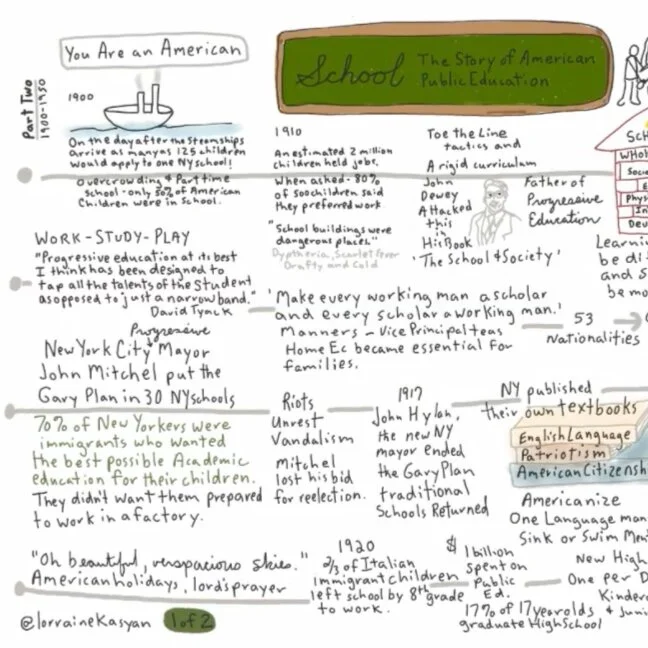 You Are an American
School The Story of American
Public Education
Part Two
1900-1950
1900
On the day after the steamships
arrive as many as 125 children
would apply to one NY school!
overcrowding & Part time
school - only 50% of American
Children were in school.
WORK-STUDY-PLAY
"Progressive education at its best
I think has been designed to
tap all the talents of the student
as opposed to just a narrow band."
David Tyack
Progressive
New York City Mayor
John Mitchel put the
Gary Plan in 30 NY schools
70% of New Yorkers were
immigrants who wanted
the best possible Academic
education for their children.
They didn't want them prepared
to work in a factory.
"Oh beautiful, verspacious skies."
American holidays, lord's prayer
@lorraineKasyan 1 of 2
1910
An estimated 2 million
children held jobs.
When asked - 80%
of 500 children said
they preferred work
"School buildings were
dangerous places"
Dyptheria, Scarlet fever
Drafty and Cold
Toe the Line
tactics and
A rigid curriculum
John
Dewey
Attacked
this
in
His Book
'The School & Society'
Father of
Progressive
Education
'Make every working man a scholar
and every scholar a working man.'
Manners - Vice Principal teas
Home Ec became essential for
families.
53
Nationalities
Riots
Unrest
Vandalism
Mitchel
lost his bid
for reelection.
1917
John Hylan,
the new NY
mayor ended
the Gary Plan
traditional
Schools Returned
NY published
their own textbooks
English Language
Patriotism
American Citizensh
Americanize
One Language man
Sink or Swim Me
1920
2/3 of Italian
immigrant children
left school by 8th grade
to work.
$ 1 billion
spent on
Public
Ed.
17% of 17 year olds
graduate High School
New High
One Per D
Kinder
& Juni
SCH
Whol
Socie
E
Phys
In
Dev
Learni
be di
and S
be mo